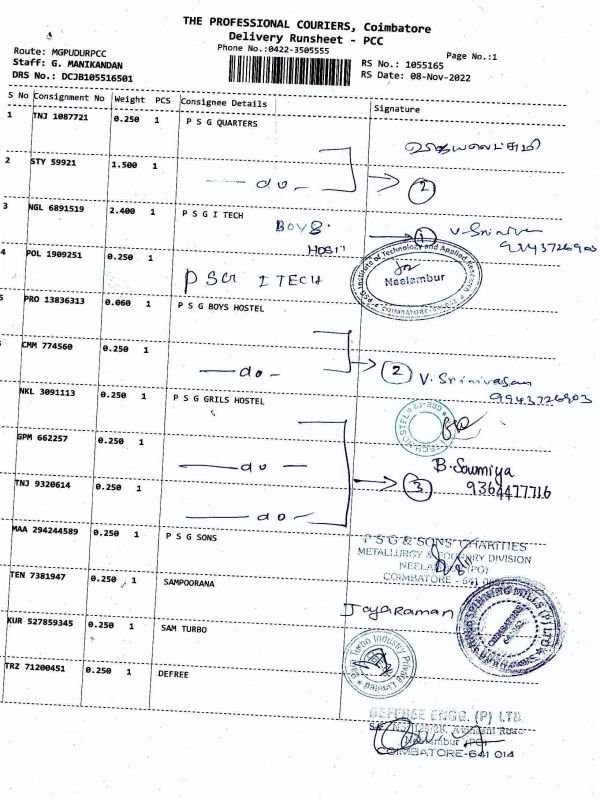 THE PROFESSIONAL COURIERS, Coimbatore
Delivery Runsheet - PCC
Phone No.:0422-3505555
Page No.:1
Route: MGPUDURPCC
Staff: G. MANIKANDAN
DRS No.: DCJB105516501
RS No.: 1055165
RS Date: 08-Nov-2022
S No Consignment No Weight PCS Consignee Details Signature
1 TNJ 1087721 0.250 1 P S G QUARTERS
2 STY 59921 1.500 1 -do- 2
3 NGL 6891519 2.400 1 P S G I TECH BOYS 1
4 POL 1909251 0.250 1 PSG I TECH
Neelambur
PRO 13836313 0.060 1 P S G BOYS HOSTEL
CMM 774560 0.250 1 -do- 2 V. Srinivasan
9943726903
NKL 3091113 0.250 1 P S G GRILS HOSTEL
GPM 662257 0.250 1 -do- B. Sowmiya
TNJ 9320614 0.250 1 -do- 3 9364477716
MAA 294244589 0.250 1 P S G SONS
P S G & SONS' CHARITIES
METALLURGY & FOUNDRY DIVISION
COIMBATORE - 641 062
TEN 7381947 0.250 1 SAMPOORANA Jayaraman
KUR 527859345 0.250 1 SAM TURBO
TRZ 71200451 0.250 1 DEFREE
ENGG. (P) LTD.
COIMBATORE-641 014